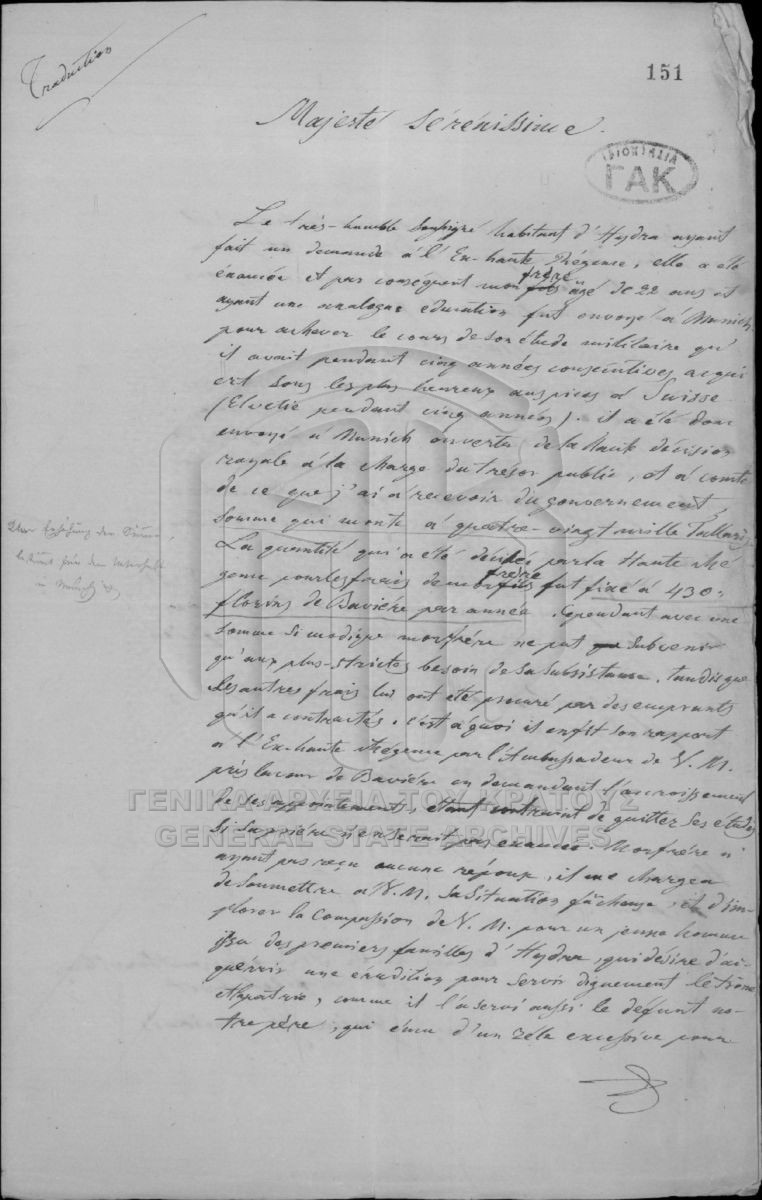 Traduction
151
Majesté sérénissime.
ΓΑΚ
Le très-humble soussigné habitant d'Hydra ayant
fait un demande à l'Ex-haute Régence, elle a été
éxaucée et par conséquent mon frère âgé de 22 ans et
ayant une analogue education fut envoyé à Munich
pour achever le cours de son étude militaire qu'
il avait pendant cinq années consécutives acqui
ert sous les plus heureux auspices à Suisse
(Elvetie pendant cinq années). il a été donc
envoyé à Munich en vertu de la haute décision
royale à la charge du trésor public, et à comte
de ce que j'ai à recevoir du gouvernement,
somme qui monte à quatre-vingt mille Tallaris
La quantité qui a été décidée par la Haute Ré
gence pour les frais de mon frère fut fixé à 430
florins de Bavière par année. Cependant avec une
somme si modique mon frère ne put subvenir
qu'aux plus-strictes besoin de sa subsistance, tandis que
les autres frais lui ont été procuré par des emprunts
qu'il a contractés. c'est à quoi il en fit son rapport
à l'Ex-haute Régence par l'Ambassadeur de V. M.
près la cour de Bavière en demandant l'accroissement
de ses appointements, étant contraint de quitter ses etudes
si sa prière n'en serait pas exaucée. Mon frère n'
ayant pas reçu aucune réponse, il me chargea
de soumettre à V. M. sa situation fâcheuse, et d'im-
plorer la Compassion de V. M. pour un jeune homme
issu des premiers familles d'Hydra, qui désire d'ac-
quérrir une érudition pour servir dignement le trône
et la patrie, comme il l'a servi aussi le défunt no-
tre père, qui ému d'un zèle excessive pour
ΓΕΝΙΚΑ ΑΡΧΕΙΑ ΤΟΥ ΚΡΑΤΟΥΣ
GENERAL STATE ARCHIVES